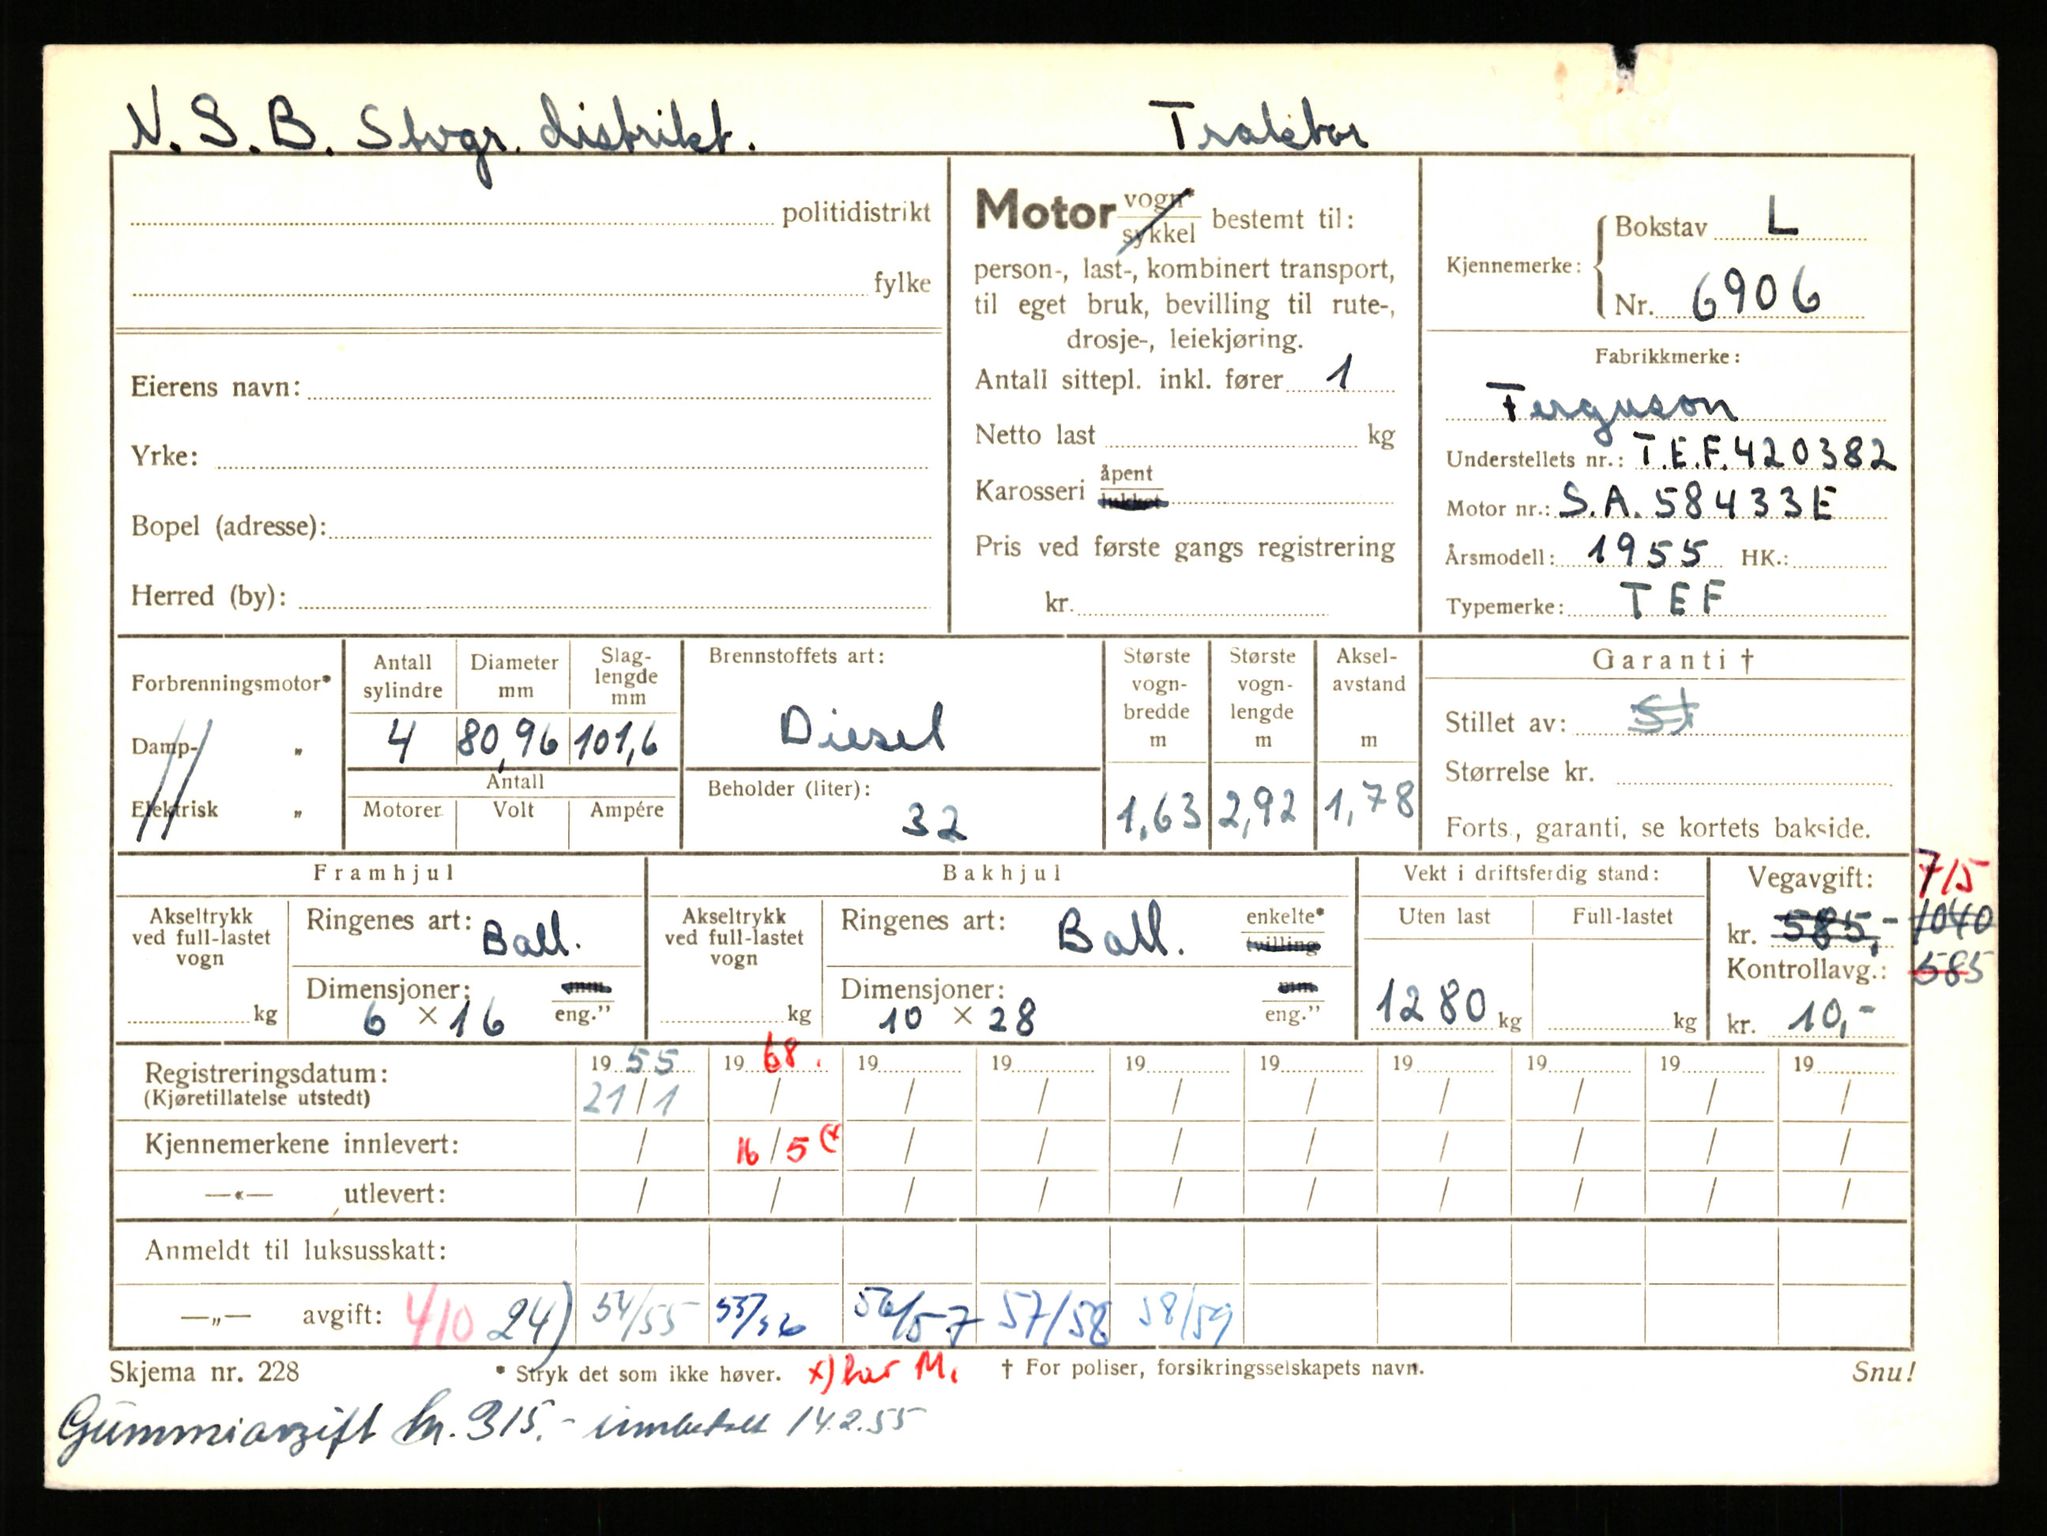 N. S. B. Stvgr. distrikt.
Traktor
politidistrikt
fylke
Eierens navn:
Yrke:
Bopel (adresse):
Herred (by):
Motor vogn* / sykkel bestemt til:
person-, last-, kombinert transport,
til eget bruk, bevilling til rute-,
drosje-, leiekjøring.
Antall sittepl. inkl. fører 1
Netto last kg
Karosseri åpent / lukket
Pris ved første gangs registrering
kr.
Kjennemerke:
Bokstav L
Nr. 6906
Fabrikkmerke:
Ferguson
Understellets nr.: T.E.F. 420382
Motor nr.: S.A. 58433E
Årsmodell: 1955 HK.:
Typemerke: TEF
Forbrenningsmotor*
Damp- "
Elektrisk "
Antall sylindre
Diameter mm
Slag-lengde mm
4 80,96 101,6
Antall
Motorer Volt Ampére
Brennstoffets art:
Diesel
Beholder (liter):
32
Største vogn-bredde m
1,63
Største vogn-lengde m
2,92
Aksel-avstand m
1,78
Garanti †
Stillet av: St
Størrelse kr.
Forts., garanti, se kortets bakside.
Framhjul
Akseltrykk
ved full-lastet
vogn
kg
Ringenes art: Ball.
Dimensjoner: mm
6 × 16 eng."
Bakhjul
Akseltrykk
ved full-lastet
vogn
kg
Ringenes art: Ball. enkelte* / tvilling
Dimensjoner: mm
10 × 28 eng."
Vekt i driftsferdig stand:
Uten last Full-lastet
1280 kg kg
Vegavgift: 715
kr. 585,- 1040
Kontrollavg.: 585
kr. 10,-
Registreringsdatum: 19 55 19 68. 19 19 19 19 19 19 19 19
(Kjøretillatelse utstedt) 21/1 / / / / / / / / /
Kjennemerkene innlevert: / 16/5 (x / / / / / / / /
—«— utlevert: / / / / / / / / / /
Anmeldt til luksusskatt:
—„— avgift: 410 24) 54/55 55/56 56/57 57/58 58/59
Skjema nr. 228 * Stryk det som ikke høver. x) har M. † For poliser, forsikringsselskapets navn. Snu!
Gummiavgift kr. 315.- innbetalt 14.2.55